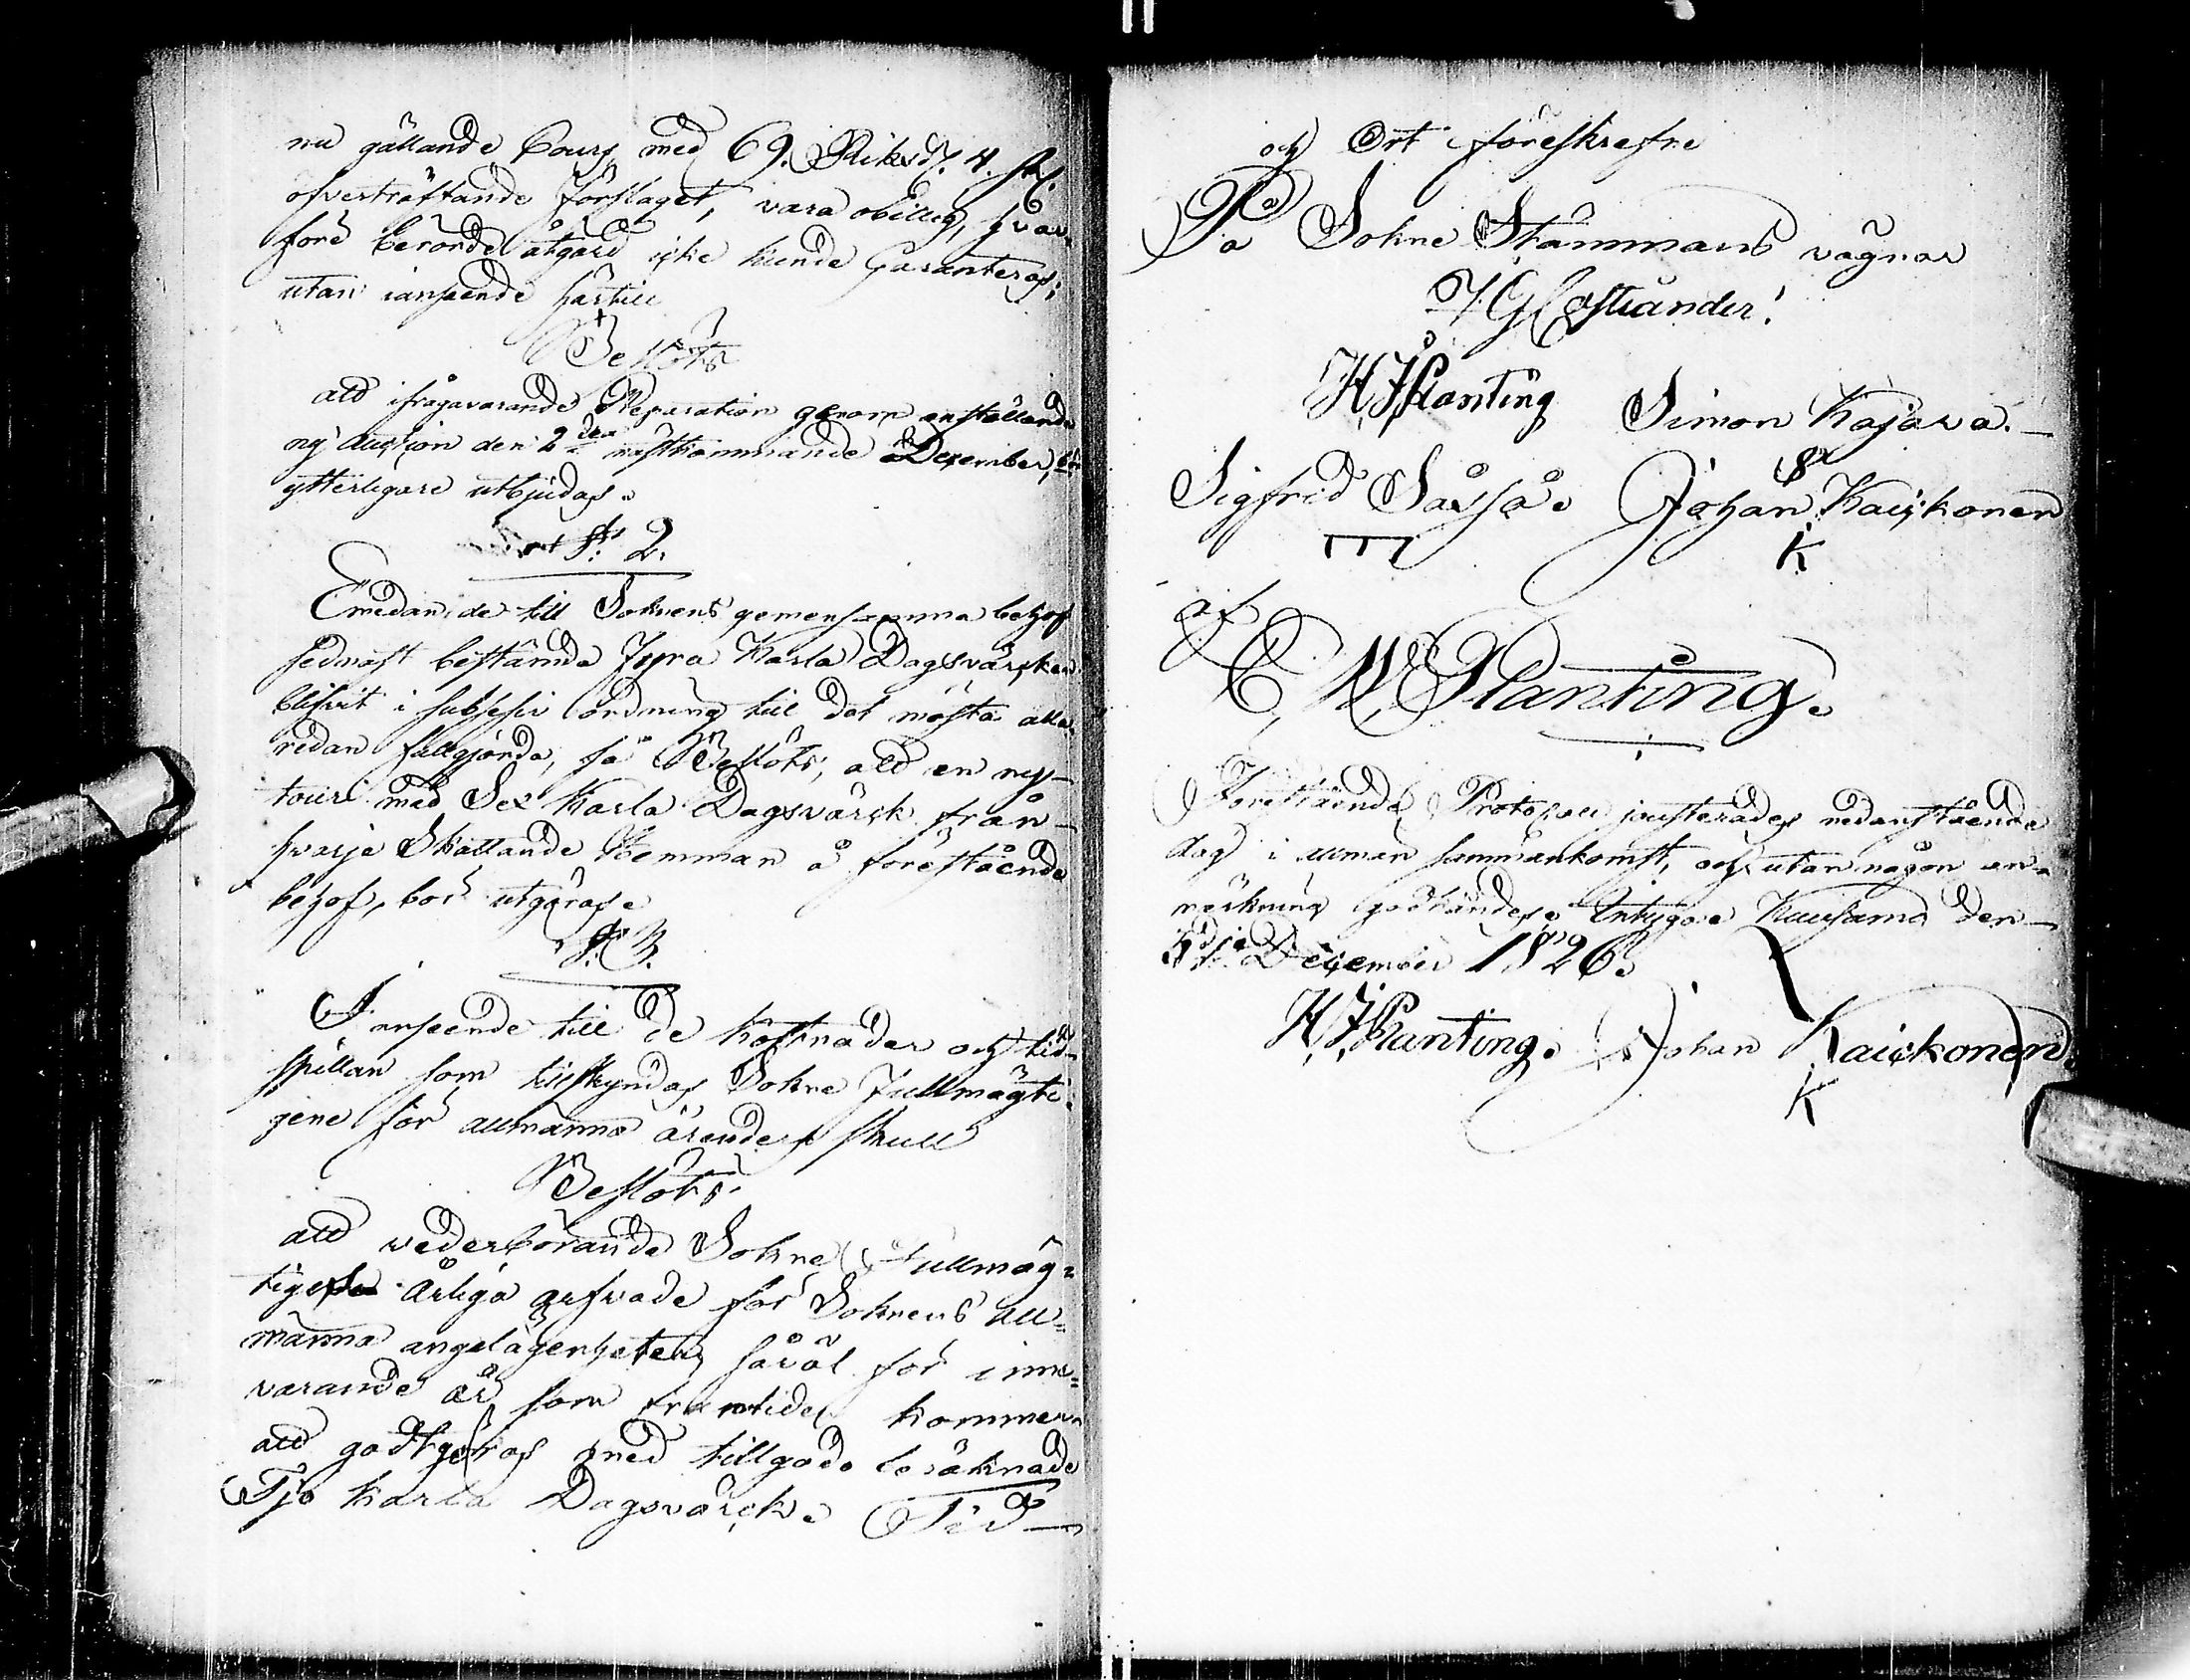 nu gällande Cours med 69. Riksd. 4. sk.
öfverträffande förslaget, vara obillig, hvar-
före berörde åtgärd icke kunde Garanteras;
utan i anseende härtill
Beslöts
att ifrågavarande Reparation genom anställande
ny Auction den 2den nästkommande December, bör
ytterligare utbjudas.
§. 2.
Emedan de till Soknens gemensamma behof
sednast bestämda Fyra Karla Dagsvärcken
blifvit i successiv ordning till det mästa alla-
redan fullgjorda, så Beslöts, att en ny
tour med Sex Karla Dagsvärck från
hvarje Skattande Hemman å förestående
behof, bör utgöras.
§. 3.
I anseende till de kostnader och tid-
spillan som tillskyndas Sokne Fullmägti-
gene för allmänna ärenders skull
Beslöts
att vederbörande Sokne Fullmäg-
tige årliga besvade för Soknens all-
männa angelägenheter, såväl för inne-
varande år som framtiden kommer
att godtgöras med tillgodo beräknade
Tjo Karla Dagsvärck. Tid
och Ort föreskrefne
På Sokne Stämmans vägnar
H J Planting Simon Kajava.
Sigfrid Säfsä. Johan Kaickonen
K
af
C, W, Planting.
Förestående Protocoll justerades nedanstående
dag i allmän sammankomst, och utan någon an-
märkning godkändes. Intygar Kuusamo den
3dje December 1826.
H, J, Planting. Johan Kaickonen
K